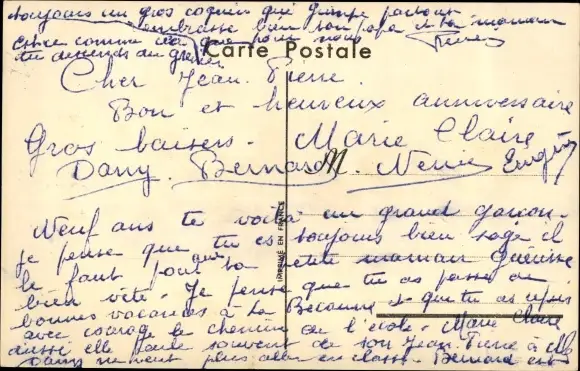 toujours un gros coquin qui grimpe partout
embrasse bien ton papa et ta maman
est ce comme cela que pour nous
tu descends du grenier
Carte Postale
Cher Jean Pierre
Bon et heureux anniversaire
Gros baisers. Marie Claire
Dany. Bernard M. Nenie
Neuf ans te voilà un grand garçon.
je pense que tu es toujours bien sage il
le faut pour que ta petite maman guérisse
bien vite. Je pense que tu as passé de
bonnes vacances à la et que tu as repris
avec courage le chemin de l'école. Marie Claire
aussi elle parle souvent de son Jean Pierre à
Dany ne veut plus aller en classe. Bernard est
IMPRIMÉ EN FRANCE